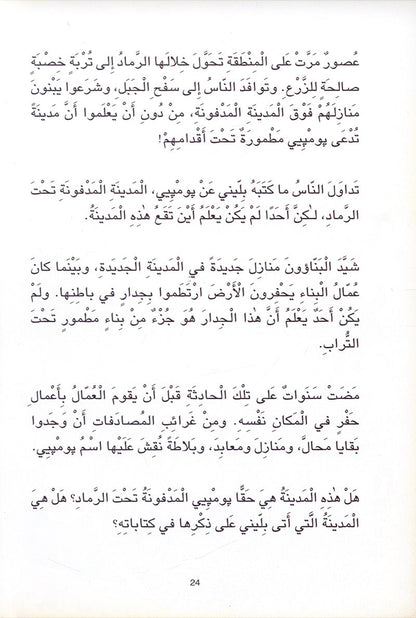 عُصورٌ مَرَّتْ عَلى الْمِنْطَقَةِ تَحَوَّلَ خِلالَها الرَّمادُ إِلى تُرْبَةٍ خِصْبَةٍ
صالِحَةٍ لِلزَّرْعِ. وتَوافَدَ النّاسُ إِلى سَفْحِ الْجَبَلِ، وشَرَعوا يَبْنونَ
مَنازِلَهُمْ فَوْقَ الْمَدينَةِ الْمَدْفونَةِ، مِنْ دونِ أَنْ يَعْلَموا أَنَّ مَدينَةً
تُدْعَى پومْپِيي مَطْمورَةٌ تَحْتَ أَقْدامِهِمْ!
تَداوَلَ النّاسُ ما كَتَبَهُ بِلّيني عَنْ پومْپِيي، الْمَدينَةِ الْمَدْفونَةِ تَحْتَ
الرَّمادِ، لٰكِنَّ أَحَدًا لَمْ يَكُنْ يَعْلَمُ أَيْنَ تَقَعُ هٰذِهِ الْمَدينَةُ.
شَيَّدَ الْبَنّاؤونَ مَنازِلَ جَديدَةً في الْمَدينَةِ الْجَديدَةِ، وبَيْنَما كانَ
عُمّالُ الْبِناءِ يَحْفِرونَ الْأَرْضَ ارْتَطَموا بِجِدارٍ في باطِنِها. ولَمْ
يَكُنْ أَحَدٌ يَعْلَمُ أَنَّ هٰذا الْجِدارَ هو جُزْءٌ مِنْ بِناءٍ مَطْمورٍ تَحْتَ
التُّرابِ.
مَضَتْ سَنَواتٌ عَلى تِلْكَ الْحادِثَةِ قَبْلَ أَنْ يَقومَ الْعُمّالُ بِأَعْمالِ
حَفْرٍ في الْمَكانِ نَفْسِهِ. ومِنْ غَرائِبِ الْمُصادَفاتِ أَنْ وَجَدوا
بَقايا مَحالَّ، ومَنازِلَ ومَعابِدَ، وبَلاطَةً نُقِشَ عَلَيْها اسْمُ پومْپِيي.
هَلْ هٰذِهِ الْمَدينَةُ هِيَ حَقًّا پومْپِيي الْمَدْفونَةُ تَحْتَ الرَّمادِ؟ هَلْ هِيَ
الْمَدينَةُ الَّتي أَتى بِلّيني عَلى ذِكْرِها في كِتاباتِهِ؟
24